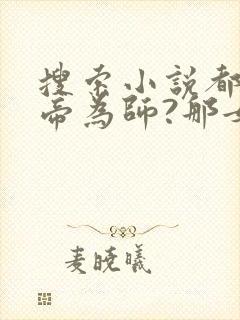 搜索小說都
帝為師?那女
麦曉曦